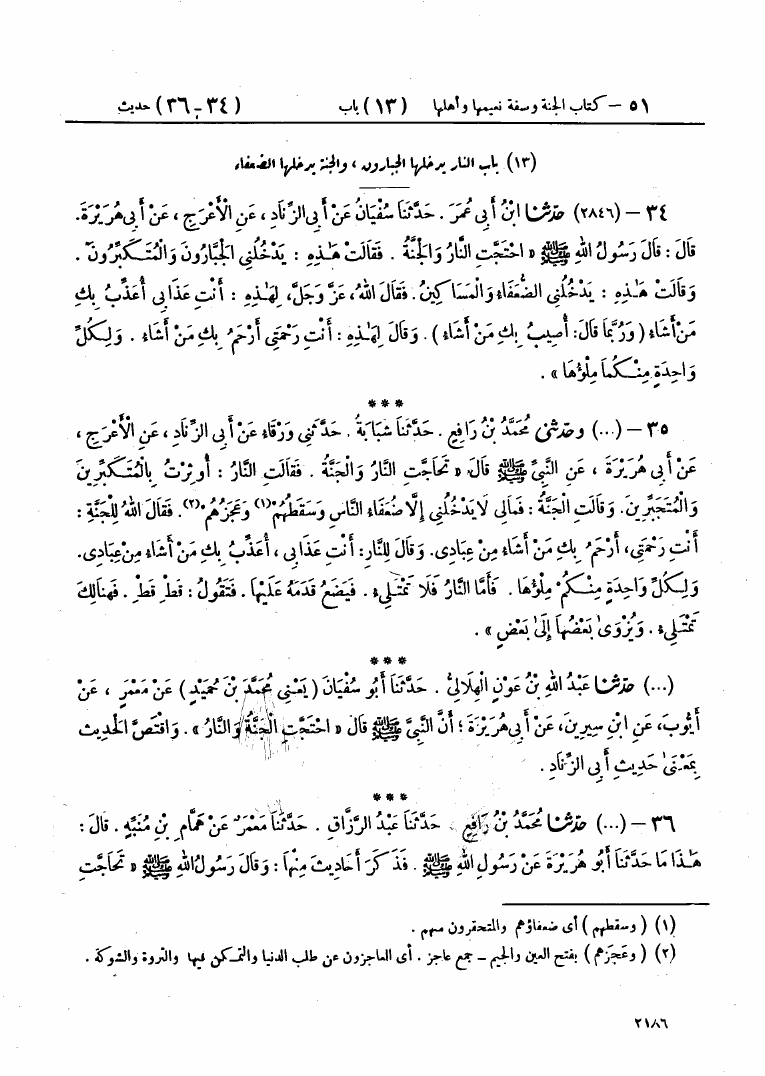 ٥١ – كتاب الجنة وصفة نعيمها وأهلها (١٣) باب (٣٤ - ٣٦) حديث
(١٣) باب النار يدخلها الجبارون ، والجنة يدخلها الضعفاء
٣٤ – (٢٨٤٦) حَدَّثَنَا ابْنُ أَبِي عُمَرَ . حَدَّثَنَا سُفْيَانُ عَنْ أَبِي الزِّنَادِ ، عَنِ الْأَعْرَجِ ، عَنْ أَبِي هُرَيْرَةَ.
قَالَ : قَالَ رَسُولُ اللهِ ﷺ « احْتَجَّتِ النَّارُ وَالْجَنَّةُ . فَقَالَتْ هَٰذِهِ : يَدْخُلُنِي الْجَبَّارُونَ وَالْمُتَكَبِّرُونَ .
وَقَالَتْ هَٰذِهِ : يَدْخُلُنِي الضُّعَفَاءُ وَالْمَسَاكِينُ . فَقَالَ اللهُ، عَزَّ وَجَلَّ، لِهَٰذِهِ : أَنْتِ عَذَابِي أُعَذِّبُ بِكِ
مَنْ أَشَاءُ ( وَرُبَّمَا قَالَ: أُصِيبُ بِكِ مَنْ أَشَاءُ ) . وَقَالَ لِهَٰذِهِ : أَنْتِ رَحْمَتِي أَرْحَمُ بِكِ مَنْ أَشَاءُ . وَلِكُلِّ
وَاحِدَةٍ مِنْكُمَا مِلْؤُهَا » .
***
٣٥ – (...) وَحَدَّثَنِي مُحَمَّدُ بْنُ رَافِعٍ . حَدَّثَنَا شَبَابَةُ . حَدَّثَنِي وَرْقَاءُ عَنْ أَبِي الزِّنَادِ ، عَنِ الْأَعْرَجِ ،
عَنْ أَبِي هُرَيْرَةَ ، عَنِ النَّبِيِّ ﷺ قَالَ « تَحَاجَّتِ النَّارُ وَالْجَنَّةُ . فَقَالَتِ النَّارُ : أُوثِرْتُ بِالْمُتَكَبِّرِينَ
وَالْمُتَجَبِّرِينَ. وَقَالَتِ الْجَنَّةُ : فَمَالِي لَا يَدْخُلُنِي إِلَّا ضُعَفَاءُ النَّاسِ وَسَقَطُهُمْ (١) وَعَجَزُهُمْ (٢). فَقَالَ اللهُ لِلْجَنَّةِ :
أَنْتِ رَحْمَتِي، أَرْحَمُ بِكِ مَنْ أَشَاءُ مِنْ عِبَادِي. وَقَالَ لِلنَّارِ: أَنْتِ عَذَابِي ، أُعَذِّبُ بِكِ مَنْ أَشَاءُ مِنْ عِبَادِي.
وَلِكُلِّ وَاحِدَةٍ مِنْكُمْ مِلْؤُهَا . فَأَمَّا النَّارُ فَلَا تَمْتَلِيءُ . فَيَضَعُ قَدَمَهُ عَلَيْهَا . فَتَقُولُ : قَطْ قَطْ . فَهُنَالِكَ
تَمْتَلِيءُ . وَيُزْوَىٰ بَعْضُهَا إِلَىٰ بَعْضٍ » .
***
(...) حَدَّثَنَا عَبْدُ اللهِ بْنُ عَوْنٍ الْهِلَالِيُّ . حَدَّثَنَا أَبُو سُفْيَانَ ( يَعْنِي مُحَمَّدَ بْنَ حُمَيْدٍ ) عَنْ مَعْمَرٍ ، عَنْ
أَيُّوبَ، عَنِ ابْنِ سِيرِينَ، عَنْ أَبِي هُرَيْرَةَ ؛ أَنَّ النَّبِيَّ ﷺ قَالَ « احْتَجَّتِ الْجَنَّةُ وَالنَّارُ » . وَاقْتَصَّ الْحَدِيثَ
بِمَعْنَىٰ حَدِيثِ أَبِي الزِّنَادِ .
***
٣٦ – (...) حَدَّثَنَا مُحَمَّدُ بْنُ رَافِعٍ . حَدَّثَنَا عَبْدُ الرَّزَّاقِ . حَدَّثَنَا مَعْمَرٌ عَنْ هَمَّامِ بْنِ مُنَبِّهٍ . قَالَ :
هَٰذَا مَا حَدَّثَنَا أَبُو هُرَيْرَةَ عَنْ رَسُولِ اللهِ ﷺ . فَذَكَرَ أَحَادِيثَ مِنْهَا : وَقَالَ رَسُولُ اللهِ ﷺ « تَحَاجَّتِ
(١) ( وسقطهم ) أى ضعفاؤهم والمتحقرون منهم .
(٢) ( وعَجَزهم ) بفتح العين والجيم – جمع عاجز . أى العاجزون عن طلب الدنيا والتمكن فيها والثروة والشوكة .
٢١٨٦